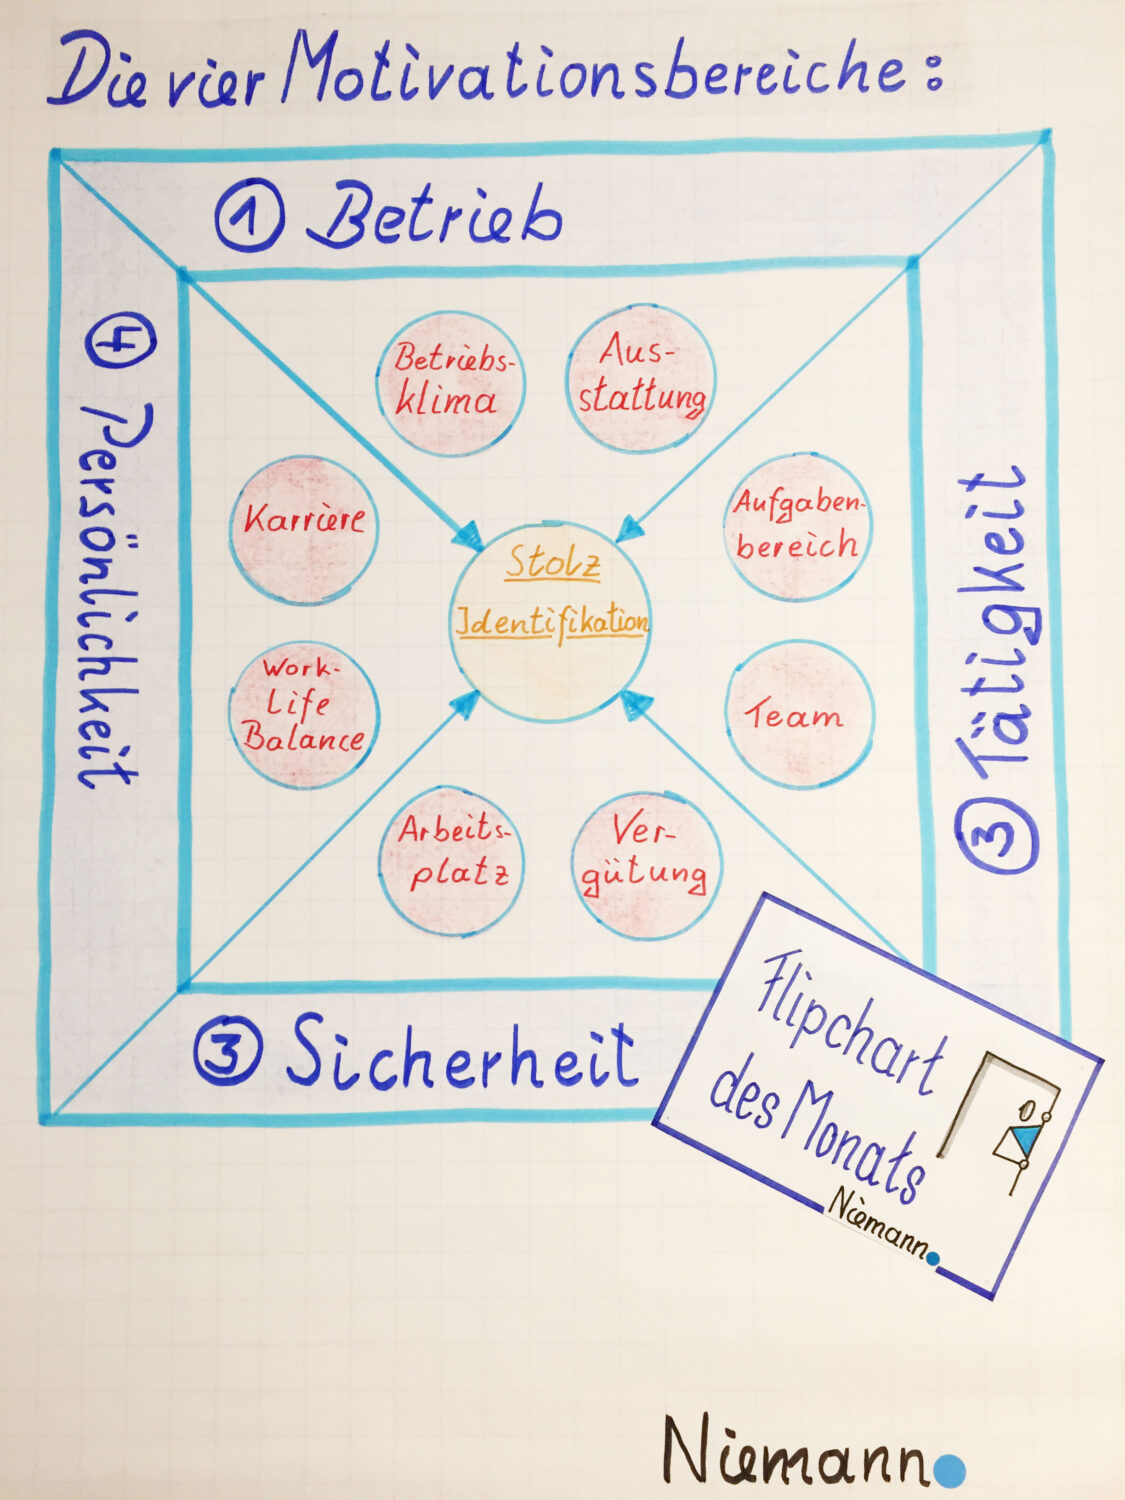 Die vier Motivationsbereiche:
① Betrieb
④ Persönlichkeit
③ Tätigkeit
Betriebs-
klima
Aus-
stattung
Karriere
Aufgaben-
bereich
Stolz
Identifikation
Work-
Life
Balance
Team
Arbeits-
platz
Ver-
gütung
③ Sicherheit
Flipchart
des Monats
Niemann
Niemann